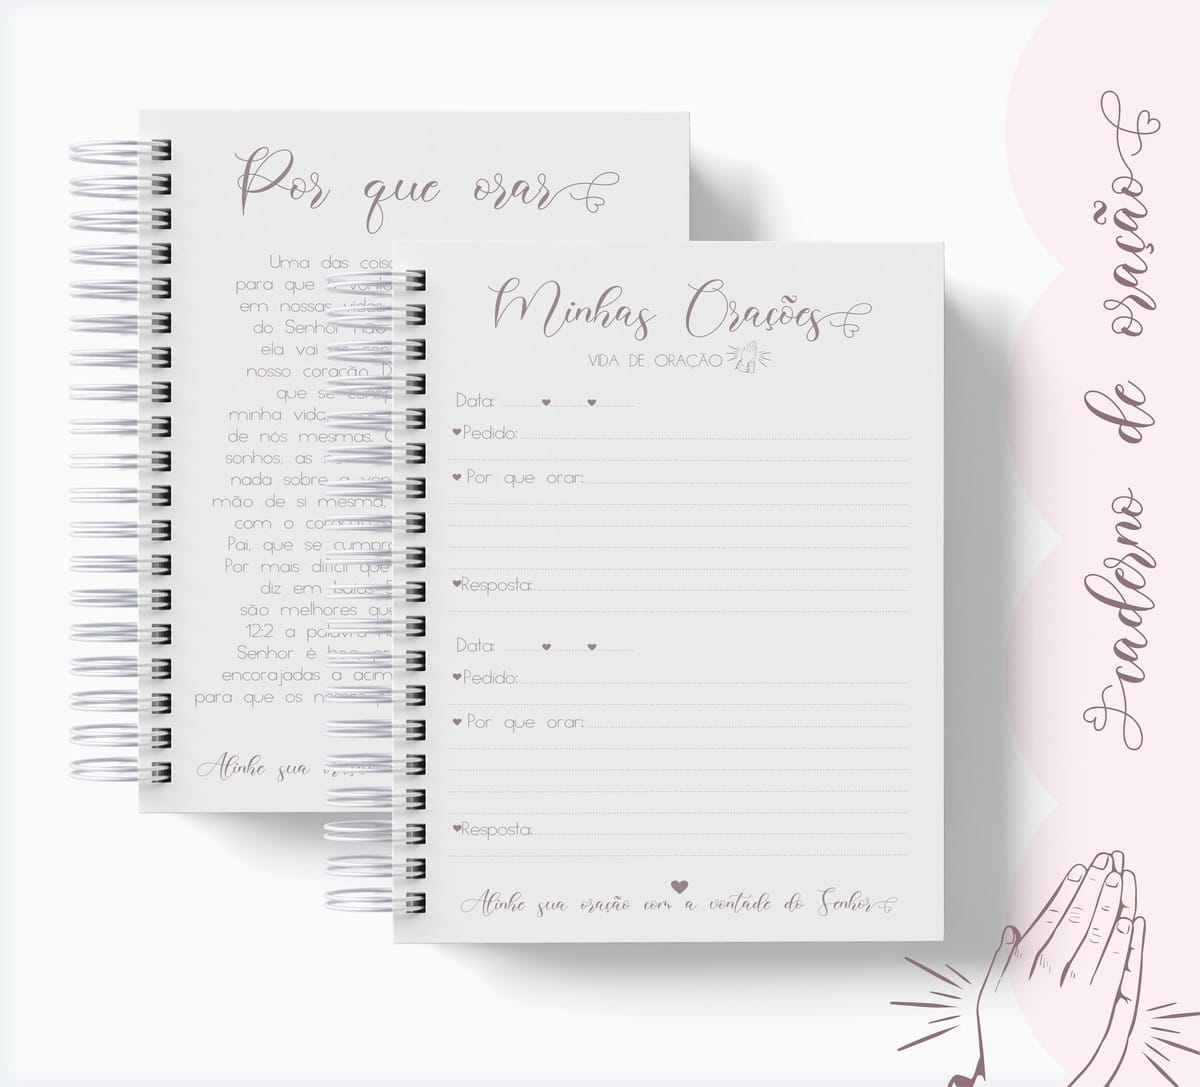 Por que orar
Uma das cois
para que a vont
em nossas vidas
do Senhor não
ela vai
nosso coração
que se
minha vida,
de nós mesmas.
sonhos, as
nada sobre a von
mão de si mesma,
com o
Pai, que se cumpr
Por mais difícil que
diz em Isaías
são melhores que
12:2 a palavra
Senhor é
encorajadas a acim
para que os nossos
Alinhe sua
Minhas Orações
VIDA DE ORAÇÃO
Data:
Pedido:
Por que orar:
Resposta:
Data:
Pedido:
Por que orar:
Resposta:
Alinhe sua oração com a vontade do Senhor
caderno de oração